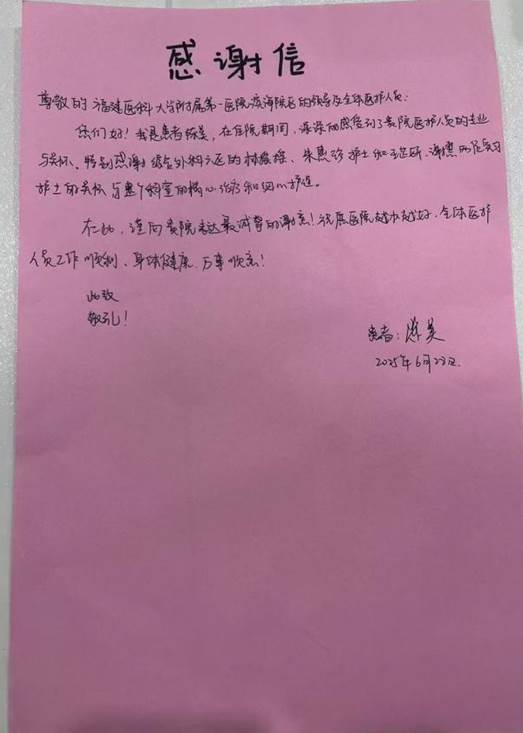 感谢信
尊敬的福建医科大学附属第一医院滨海院区的领导及全体医护人员:
您们好!我是患者 美,在住院期间,深深的感受到了贵院医护人员的专业
与关怀、特别感谢综合外科六区的林 、朱惠珍护士和 、谢 两位实习
护士的关怀与整个科室的精心治疗和细心护连。
在此,谨向贵院表达最诚挚的谢意!祝愿医院越办越好,全体医护
人员工作顺利、身体健康、万事顺意!
此致
敬礼!
患者: 美
2025年6月23日.